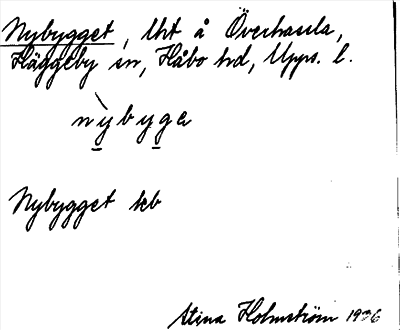 Nybygget, lht å Överhassla,
Häggeby sn, Håbo hd, Upps. l.
nỳbyge
Nybygget kb
Stina Holmström 1936